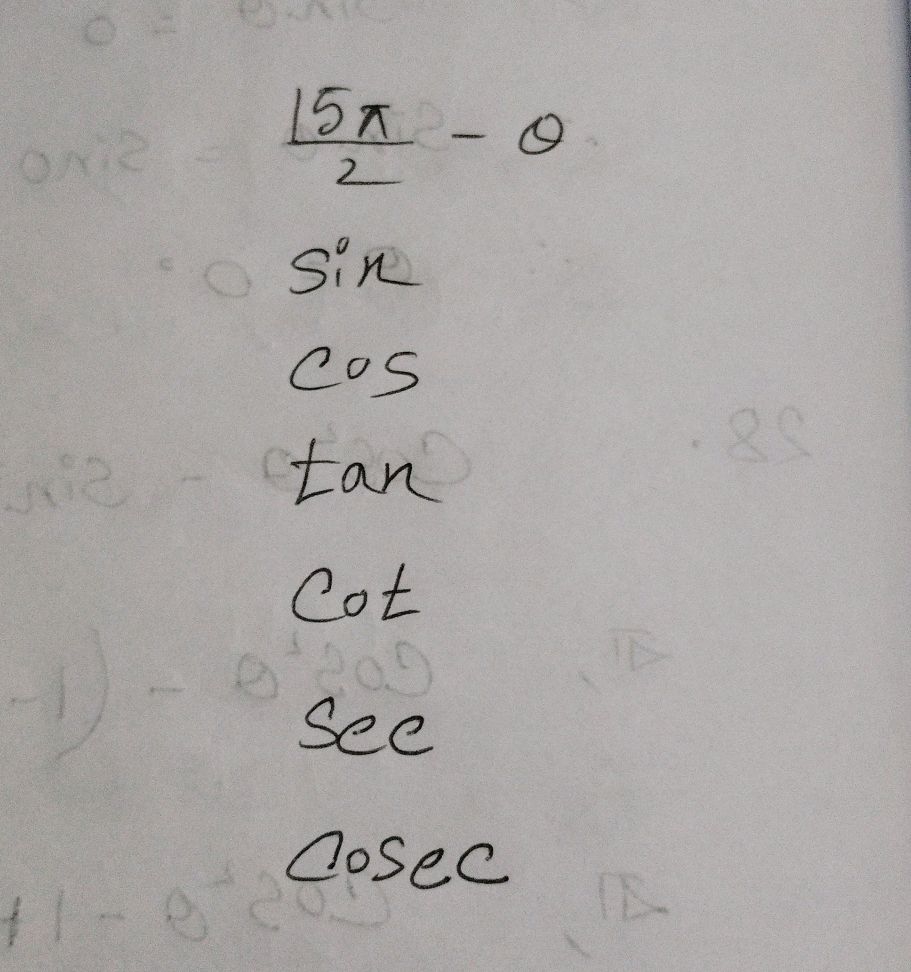 15π/2 - θ
sin
cos
tan
Cot
Sec
Cosec